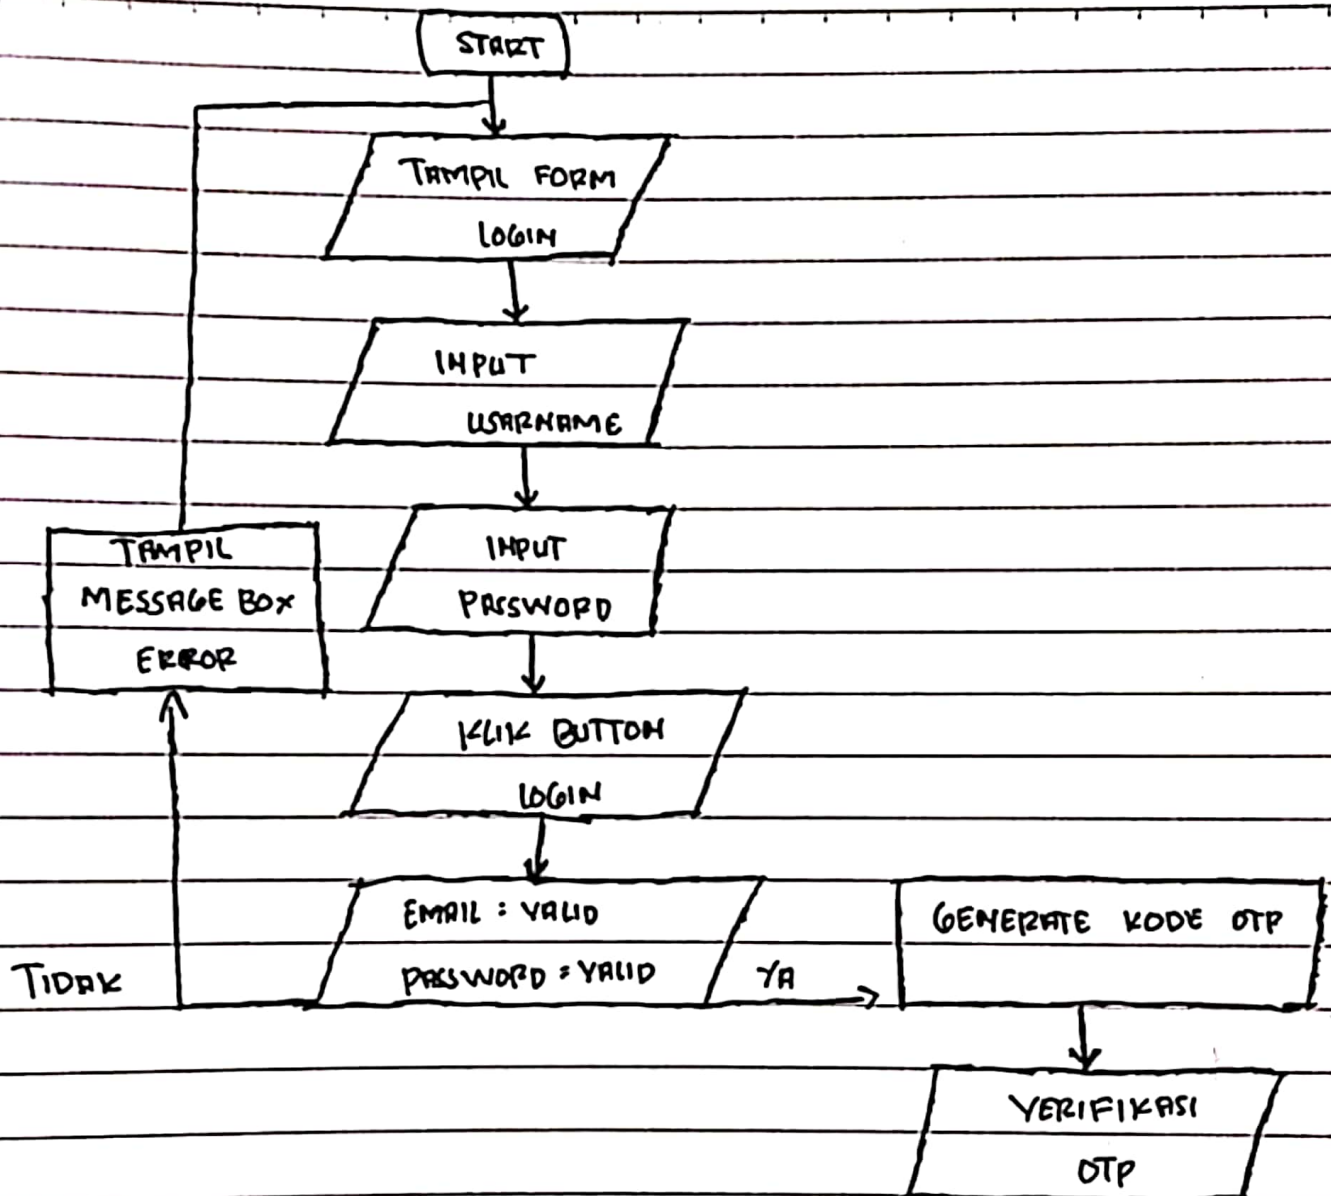 START
TAMPIL FORM
LOGIN
INPUT
USARNAME
INPUT
PASSWORD
TAMPIL
MESSAGE BOX
ERROR
KLIK BUTTON
LOGIN
EMAIL : VALID
PASSWORD : VALID
TIDAK
YA
GENERATE KODE OTP
VERIFIKASI
OTP